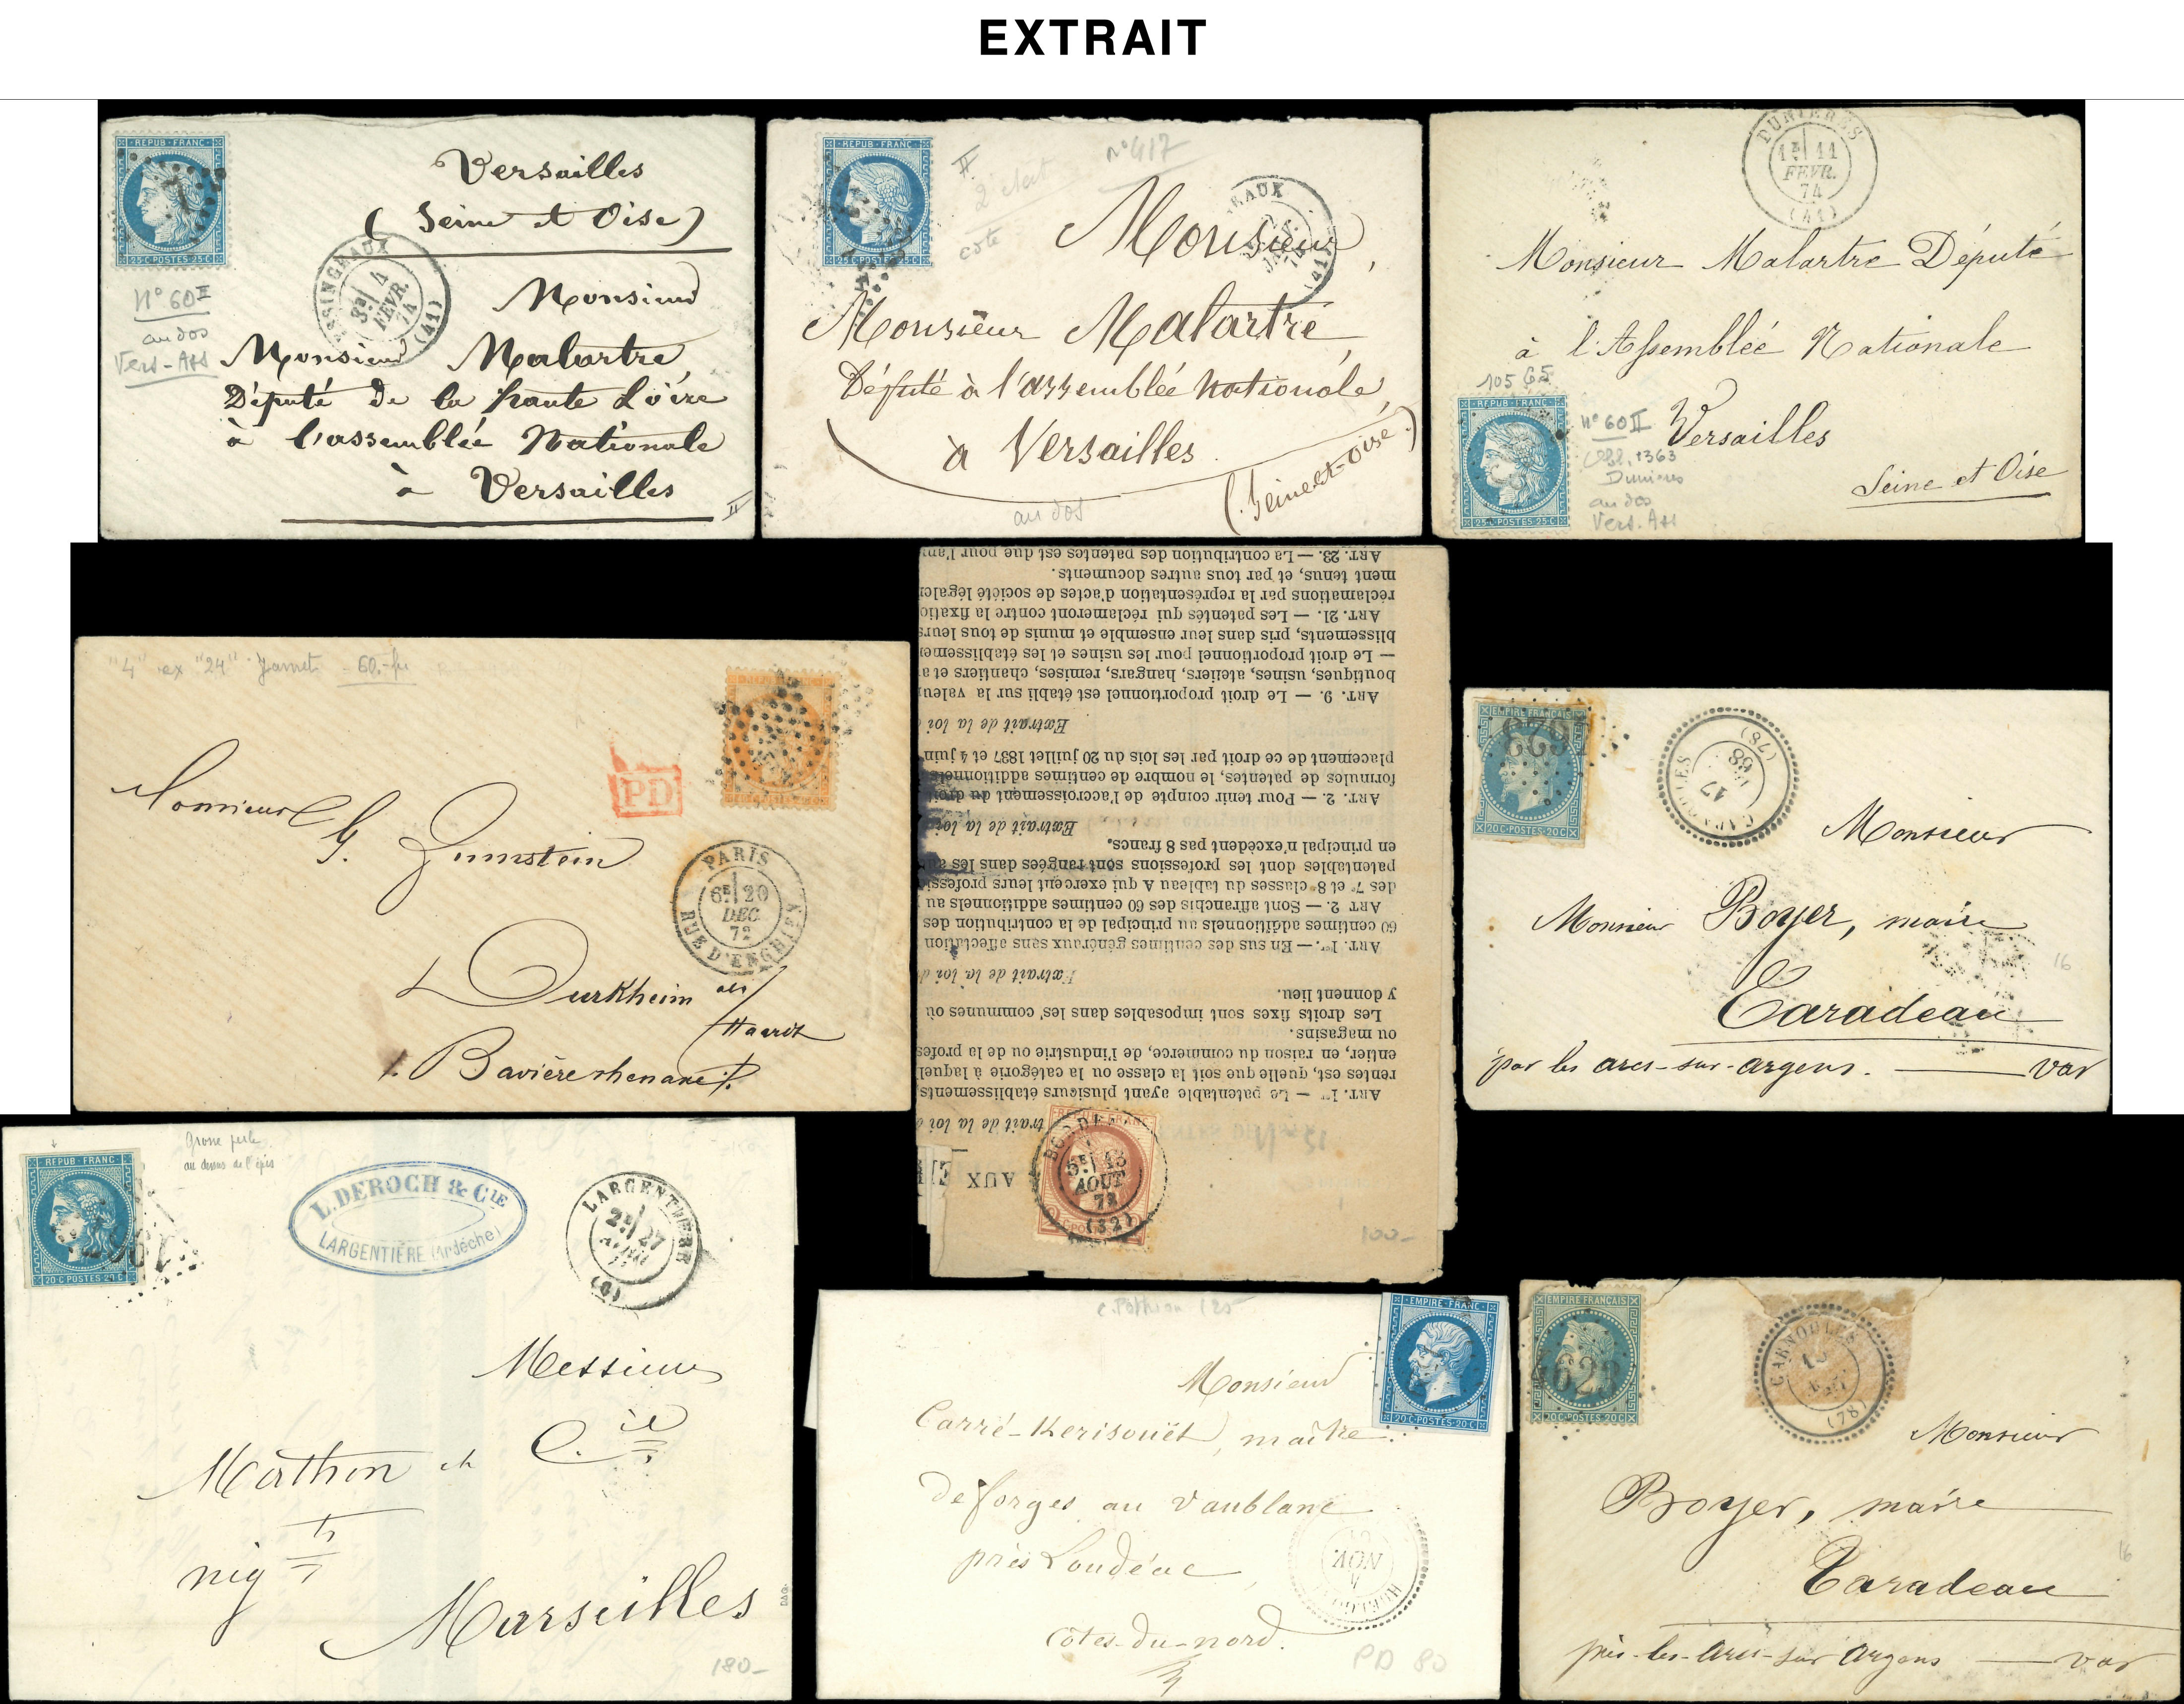 EXTRAIT
REPUB·FRANC·
25·C·POSTES·25·C
N° 60 II
au dos
Vers-Ass
Versailles
(Seine et Oise)
SSINGEAUX
3E 4
FEVR.
74
(41)
Monsieur
Monsieur Malartre,
Député de la haute Loire
à l'assemblée Nationale
à Versailles
II
REPUB·FRANC·
25·C·POSTES·25·C
II
2e état
n° 417
cote
EAUX
74
(41)
Monsieur,
Monsieur Malartre,
Député à l'assemblée Nationale,
à Versailles
(Seine et-Oise.)
au dos
DUNIERES
1E 11
FEVR.
74
(41)
Monsieur Malartre Député
à l'Assemblée Nationale
105 G5
REPUB·FRANC·
25·C·POSTES·25·C
N° 60 II
Obl. 1363
Dunières
au dos
Vers. Ass
Versailles
Seine et Oise
"4" ex "24" Jamet - 60.-fr
PD
Monsieur
G. Zumstein
PARIS
6E 20
DEC.
72
RUE D'ENGHIEN
Durkheim
Haardt
Bavière rhenane
ART. 23. — La contribution des patentes est due pour l'an
ment tenus, et par tous autres documents.
réclamations par la représentation d'actes de société légale
ART. 21. — Les patentés qui réclameront contre la fixatio
blissements, pris dans leur ensemble et munis de tous leurs
— Le droit proportionnel pour les usines et les établisseme
boutiques, usines, ateliers, hangars, remises, chantiers et a
ART. 9. — Le droit proportionnel est établi sur la valeu
Extrait de la loi
placement de ce droit par les lois du 20 juillet 1837 et 4 juin
formules de patentes, le nombre de centimes additionnels
ART. 2. — Pour tenir compte de l'accroissement du droit
Extrait de la loi
en principal n'excèdent pas 8 francs.
patentables dont les professions sont rangées dans les
des 7e et 8e classes du tableau A qui exercent leurs profess
ART. 2. — Sont affranchis des 60 centimes additionnels au
60 centimes additionnels au principal de la contribution des
ART. 1er. — En sus des centimes généraux sans affectation
Extrait de la loi
y donnent lieu.
Les droits fixes sont imposables dans les communes où
ou magasins.
entier, en raison du commerce, de l'industrie ou de la profes
rentes est, quelle que soit la classe ou la catégorie à laquel
ART. 1er — Le patentable ayant plusieurs établissements
trait de la loi
AUX
5E 13
AOUT
(32)
100-
EMPIRE FRANÇAIS
20·C·POSTES·20·C
4623
CARNOULES
17
68
(78)
Monsieur
Monsieur Boyer, maire
16
Taradeau
par les arcs-sur-argens. — Var
REPUB·FRANC·
20·C·POSTES·20·C
grosse perle
au dessus de l'épis
L. DEROCH & CIE
LARGENTIÈRE (Ardèche)
LARGENTIERE
2E 27
Messieurs
Mathon et Cie
nég ts
Marseilles
180-
c. Pothion 125
EMPIRE·FRANC·
20·C·POSTES·20·C
Monsieur
Carré-Kerisouët, maître
de forges au Vaublanc
près Loudéac
NOV.
Côtes-du-nord.
PD 80
EMPIRE FRANÇAIS
20·C·POSTES·20·C
4623
CARNOULES
(78)
Monsieur
Boyer, maire
16
Taradeau
près-les-Arcs-sur Argens — Var